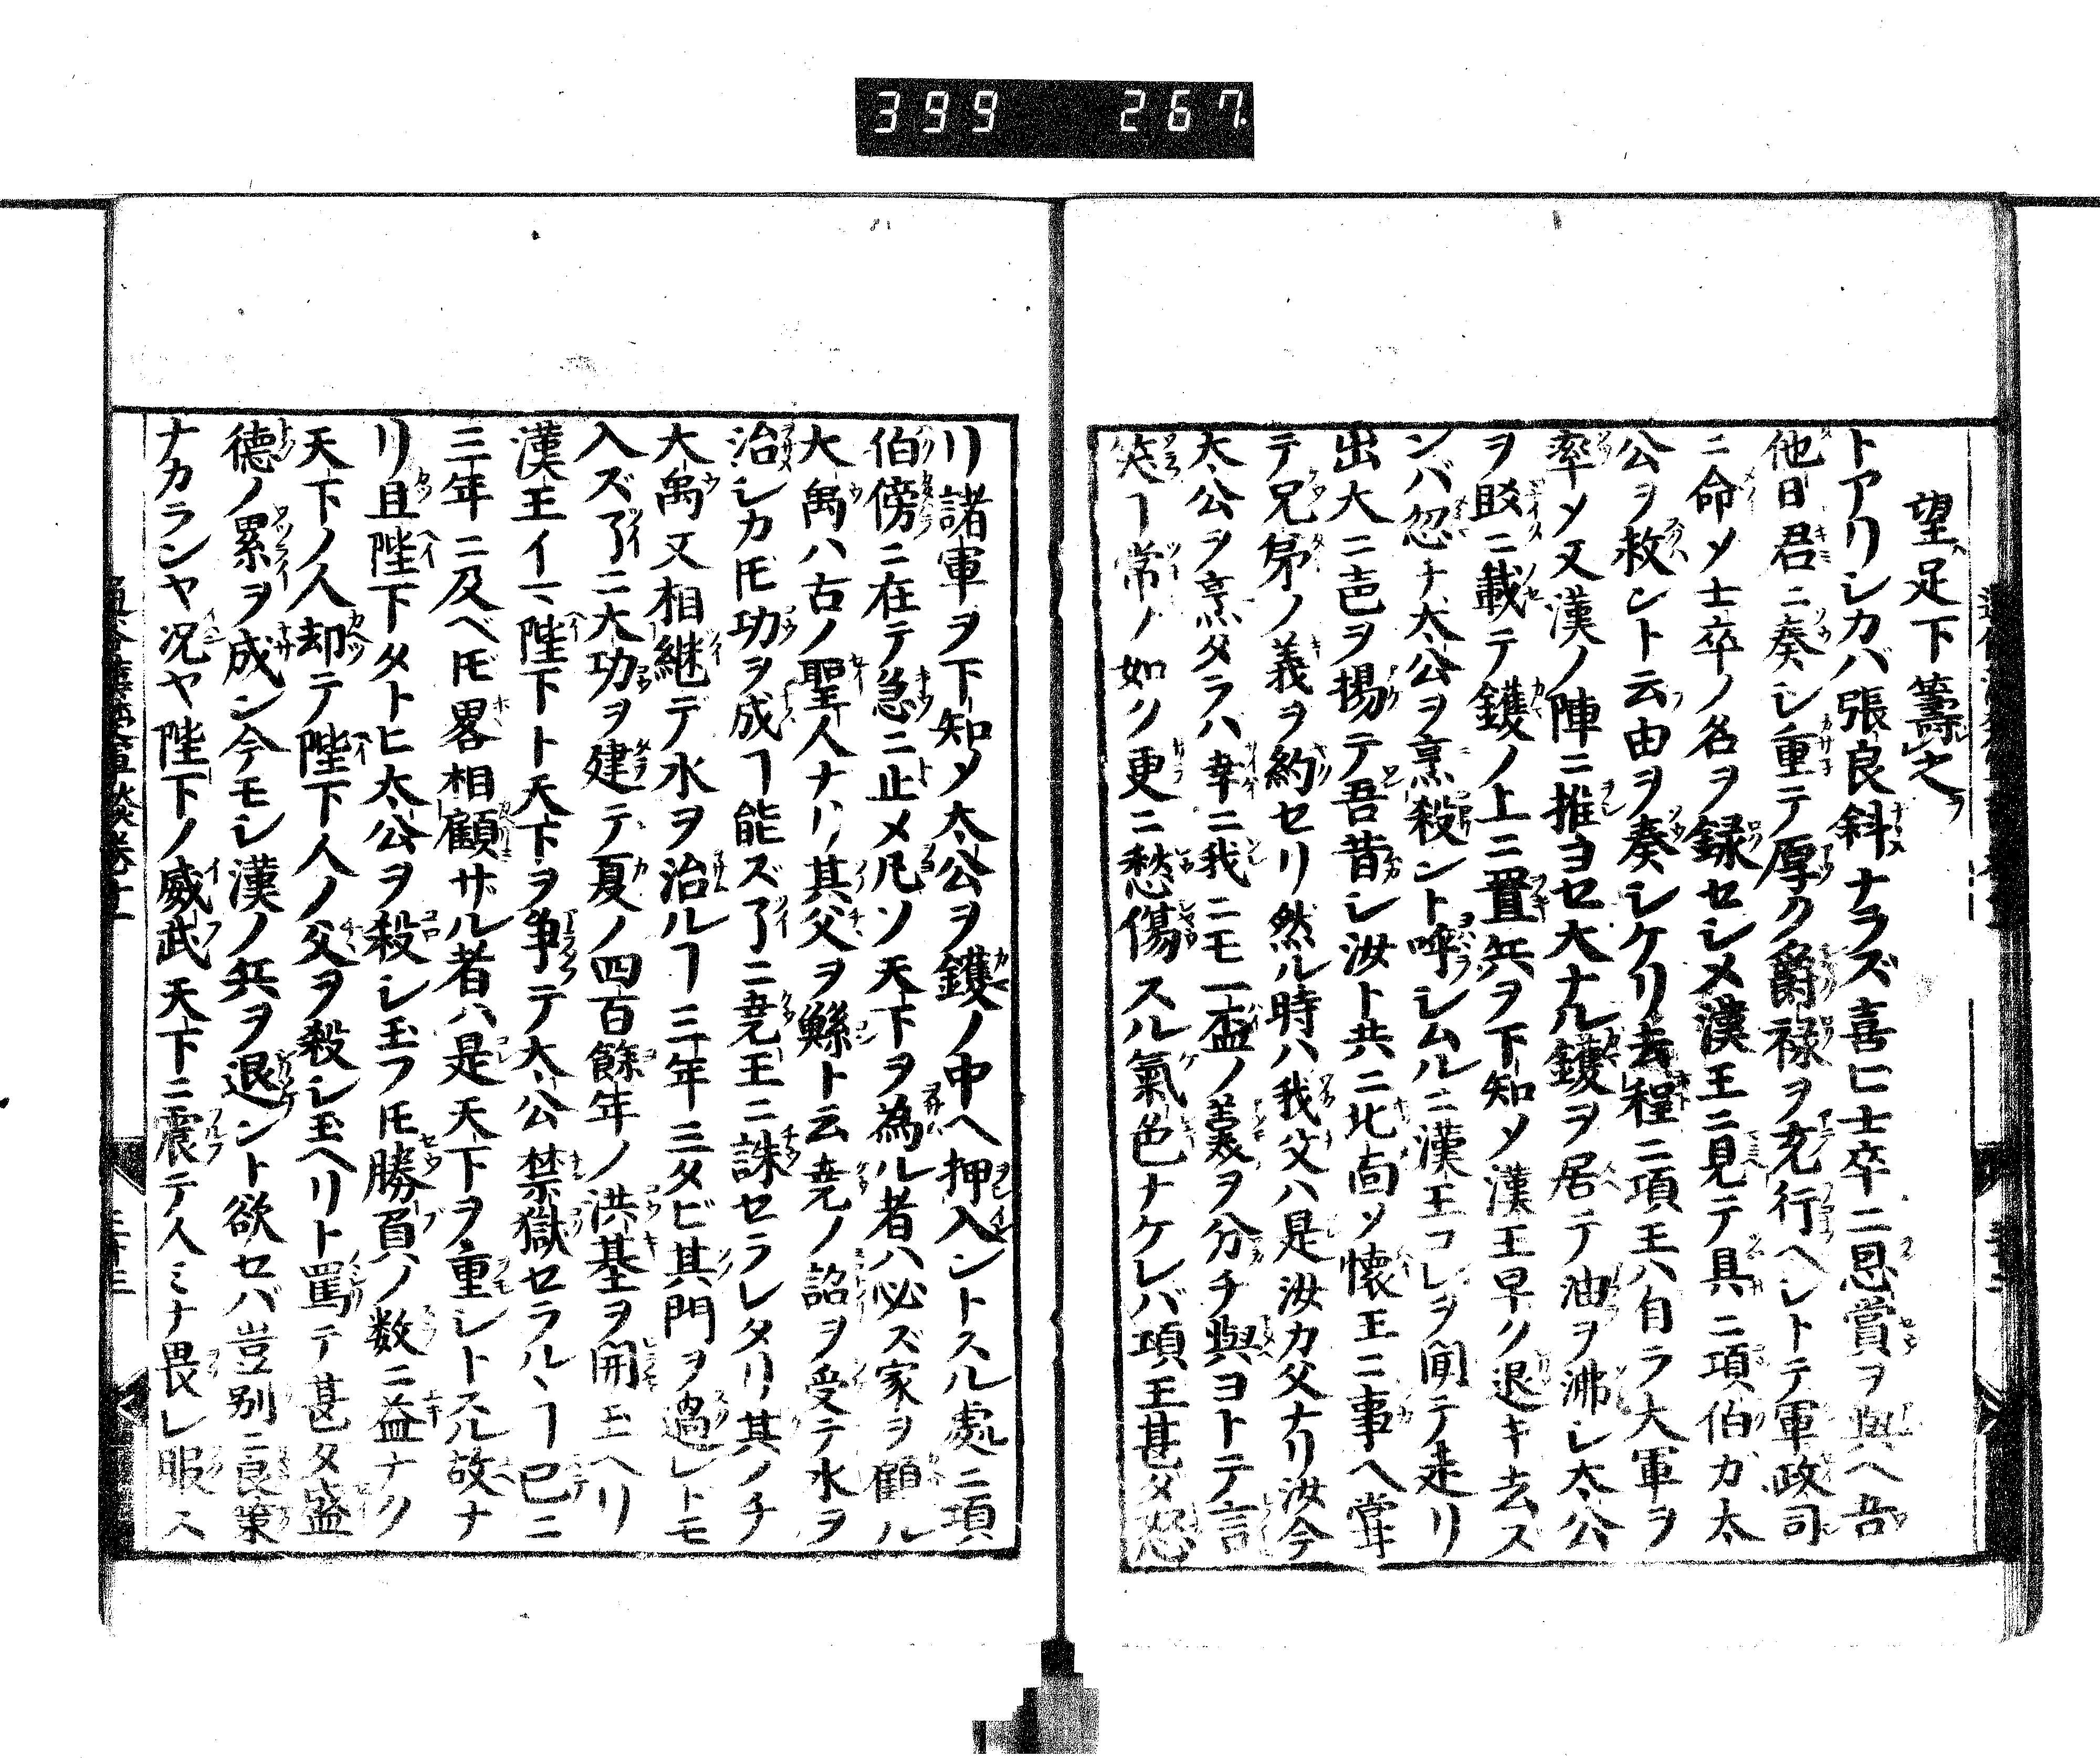 399 267
望足下籌之
トアリシカバ張良斜ナラズ喜ヒ士卒ニ恩賞ヲ與ヘ吾
他日君ニ奏シ重テ厚ク爵禄ヲ充行ヘシトテ軍政司
ニ命メ士卒ノ名ヲ録セシメ漢王ニ見テ具ニ項伯ガ太
公ヲ救ント云由ヲ奏シケリ去程ニ項王ハ自ラ大軍ヲ
率メ又漢ノ陣ニ推ヨセ大ナル鑊ヲ居テ油ヲ沸シ太公
ヲ駁ニ載テ鑊ノ上ニ置兵ヲ下知メ漢王早ク退キ去ズ
ンバ忽ナ太公ヲ烹殺ント呼シムルニ漢王コレヲ聞テ走リ
出大ニ声ヲ揚テ吾昔シ汝ト共ニ北面メ懐王ニ事ヘ嘗
テ兄弟ノ義ヲ約セリ然ル時ハ我父ハ是汝カ父ナリ汝今
太公ヲ烹タラハ幸ニ我ニモ一盃ノ羹ヲ分チ與ヨトテ言
笑ヿ常ノ如ク更ニ愁傷スル氣色ナケレバ項王甚タ怒
リ諸軍ヲ下知メ太公ヲ鑊ノ中ヘ押入ントスル處ニ項
伯傍ニ在テ急ニ止メ凡ソ天下ヲ為ル者ハ必ズ家ヲ顧ル
大禹ハ古ノ聖人ナリ其父ヲ鯀ト云尭ノ詔ヲ受テ水ヲ
治シカ𪜈功ヲ成ヿ能ズ了ニ尭王ニ誅セラレタリ其ノチ
大禹又相継デ水ヲ治ルヿ三年三タビ其門ヲ過レトモ
入ズ了ニ大功ヲ建テ夏ノ四百餘年ノ洪基ヲ開玉ヘリ
漢王イマ陛下ト天下ヲ争テ太公禁獄セラルヽヿ已ニ
三年ニ及ベ𪜈畧相顧ザル者ハ是天下ヲ重シトスル故ナ
リ且陛下タトヒ太公ヲ殺シ玉フ𪜈勝負ノ数ニ益ナク
天下ノ人却テ陛下人ノ父ヲ殺シ玉ヘリト罵テ甚タ盛
徳ノ累ヲ成ン今モシ漢ノ兵ヲ退ント欲セバ豈別ニ良策
ナカランヤ况ヤ陛下ノ威武天下ニ震テ人ミナ畏レ服ス